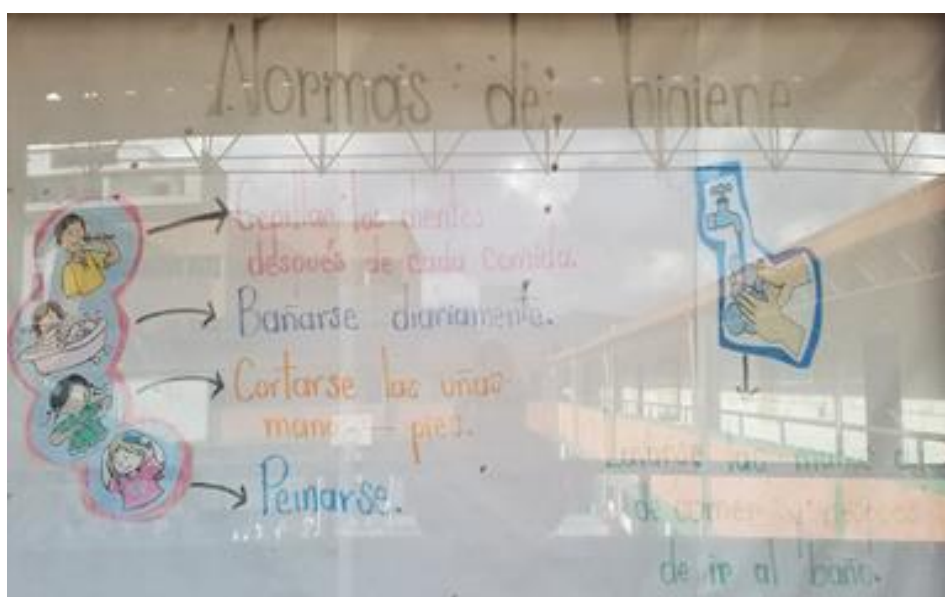 Normas de higiene
Cepillar los dientes
después de cada comida.
Bañarse diariamente.
Cortarse las uñas
mano - pies.
Peinarse.
las manos
de comer y después
de ir al baño.